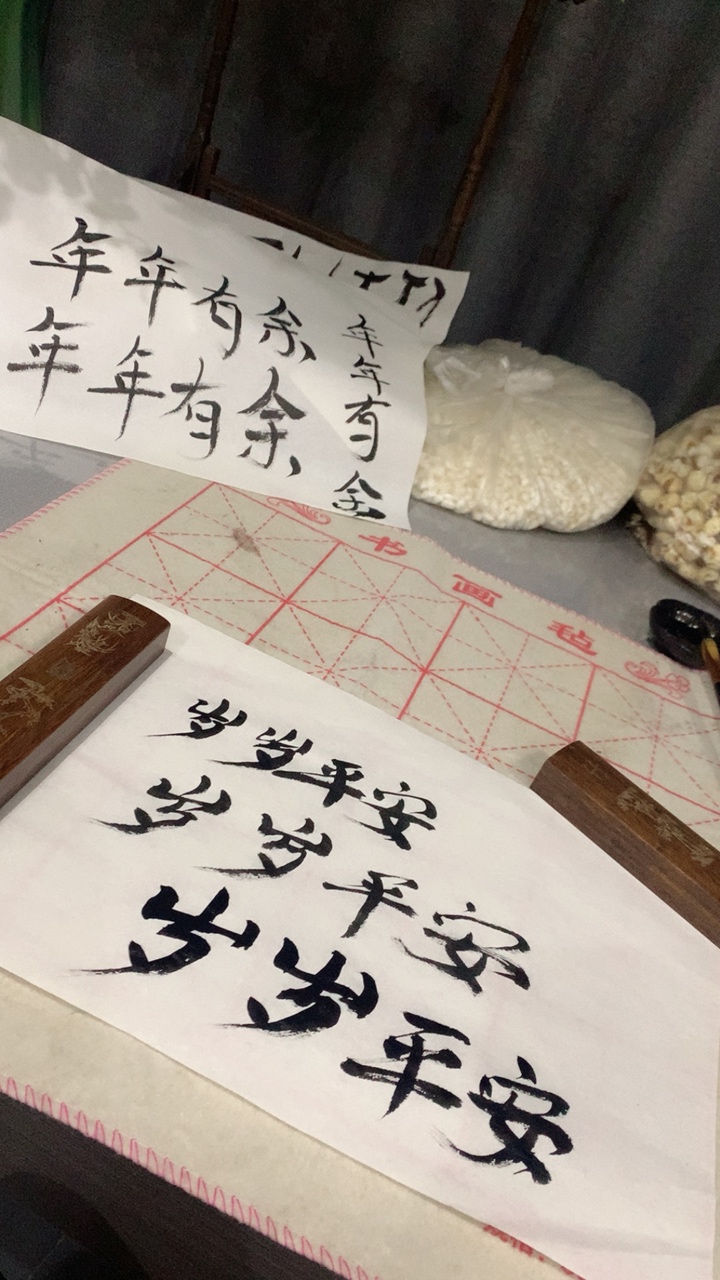 年年有余
年年有余
年年有余
书画毡
岁岁平安
岁岁平安
岁岁平安